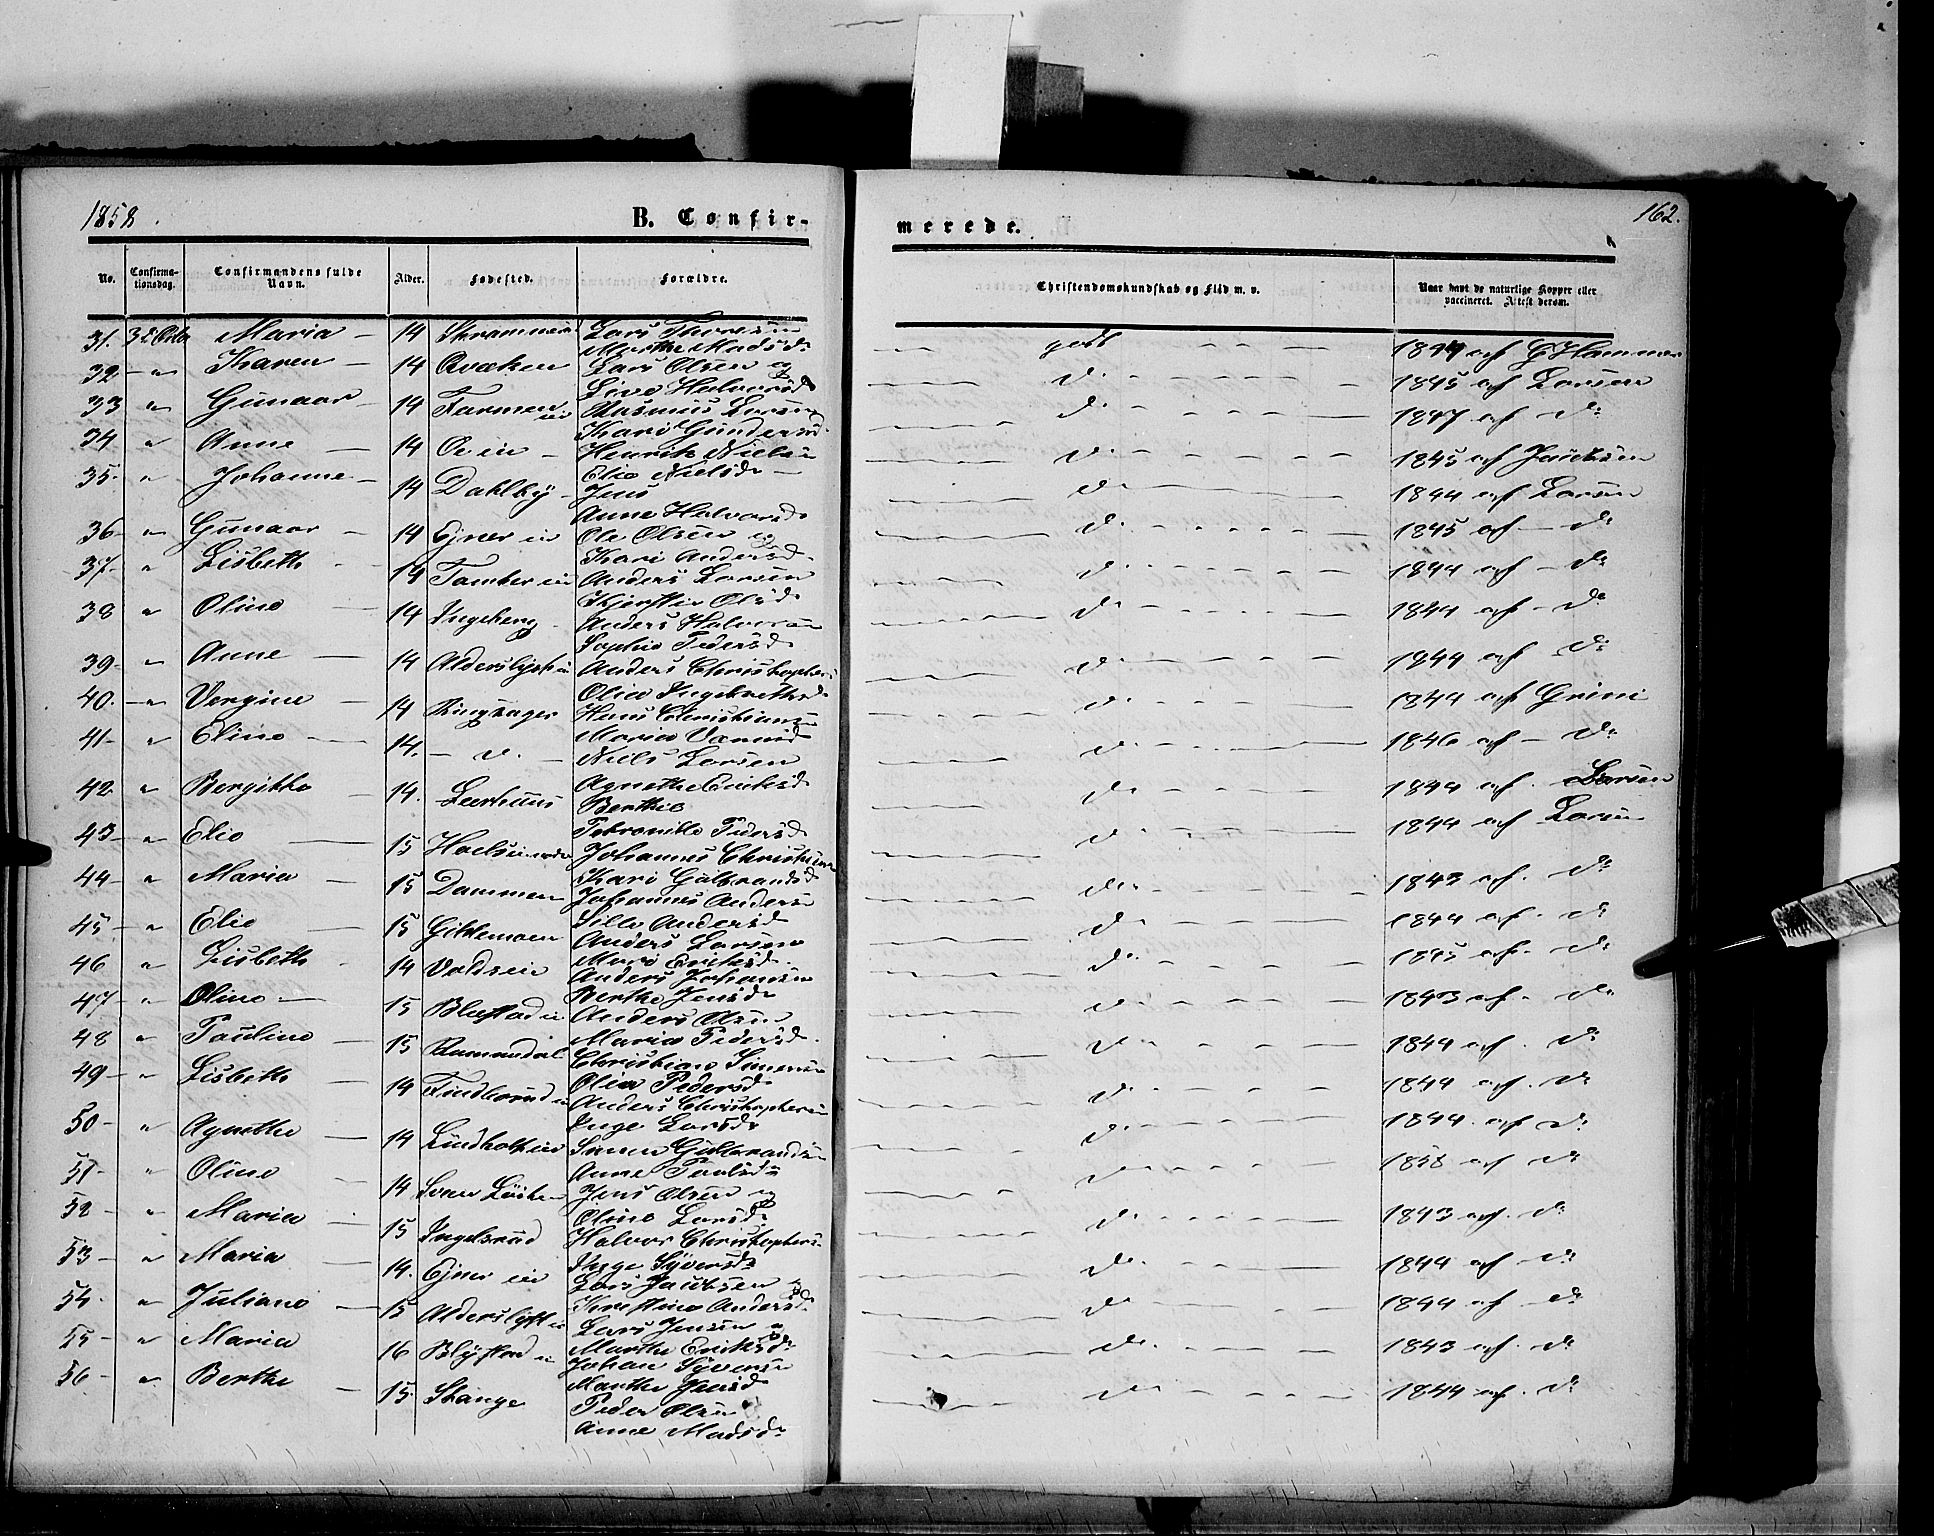 1858.
B. Confir-
merede.
162.
No.
Confirma-
tionsdag.
Confirmandens fulde
Navn.
Alder.
Fødested.
Forældre.
Christendomskundskab og Flid m. v.
Naar havt de naturlige Kopper eller
vaccineret. Attest derom.
31. Maria — 14 Lars
Marthe Madsd. godt 1844 af Hammer
32 — " Karen — 14 Lars Olsen og
Halvorsd d. 1845 af Larsen
33 " Gunaar — 14 Rasmus Larsen
Kari Gundersd. d. 1847 af d.
34 " Anne — 14 Henrik Nielsen
Elie Nielsd. d. 1845 af
35. " Johanne — 14 Dahlby Jens
Anne Halvorsd d. 1844 af Larsen
36 — " Gunaar — 14 Ejner ie Ole Olsen og
Kari Andersd. d. 1845 af — d.
37. " Lisbeth 14 Anders Larsen
Kjerstie Olsd. d. 1844 af — d.
38 " Oline — 14 Ingeberg Anders Halvorsen
Sophie Pedersd. d. 1844 af — d.
39 — " Anne — 14 Anders Christophers
Olia Ingebrethsd. d. 1844 af d.
40. — " Vergine — 14 Ringsager Hans Christians
Maria d. 1844 af Grini
41 — " Eline — 14. — d. — Niels Larsen
Agnethe Eriksd. d. 1846 af — d.
42. " Bergitthe — 14. Berthel
Petronille Pedersd. d. 1844 af. Larsen
43 — " Elie — 15 Johannes Christians
Kari Gulbrandsd. d. 1844 af Larsen
44 — " Maria — 15 Dammen Johannes Anders
Sille Andersd. d. 1843 af. d.
45 — " Elie — 15 Anders Larsen
Mari Eriksd. d. 1844 af. d.
46 " Lisbeth 14 Anders Johansen
Berthe Jensd. d. 1845 af. d.
47 — " Oline — 15 Anders Olsen
Maria Pedersd. d. 1843 af. d.
48 " Pauline — 15 Christian Simens
Olia Pedersd. d. 1844 af. d.
49 — " Lisbeth — 14 Anders Christophersen
Inge Larsd. d. 1844 af. d.
50 — " Agnethe — 14 Gulbrandsen
Anne Paulsd. d. 1844 af d.
51 — " Oline — 14 Jens Olsen og
Oline Larsd. 1858 af d.
52 " Maria 15 Ingelsrud Halvor Christophers
Inge Syversd. d. 1843 af. d.
53 — " Maria — 14. Ejner ie Lars Jacobsen og
Kristine Andersd. d. 1844 af d.
54 — " Juliane — 15 Lars Jensen og
Marthe Eriksd. d. 1844 af — d.
55 — " Maria 16 Johan Syversen
Marthe Jensd. d. 1843 af. d.
56 — " Berthe — 15. Stange Peder Olsen
Anne Madsd. d. 1844 af. d.